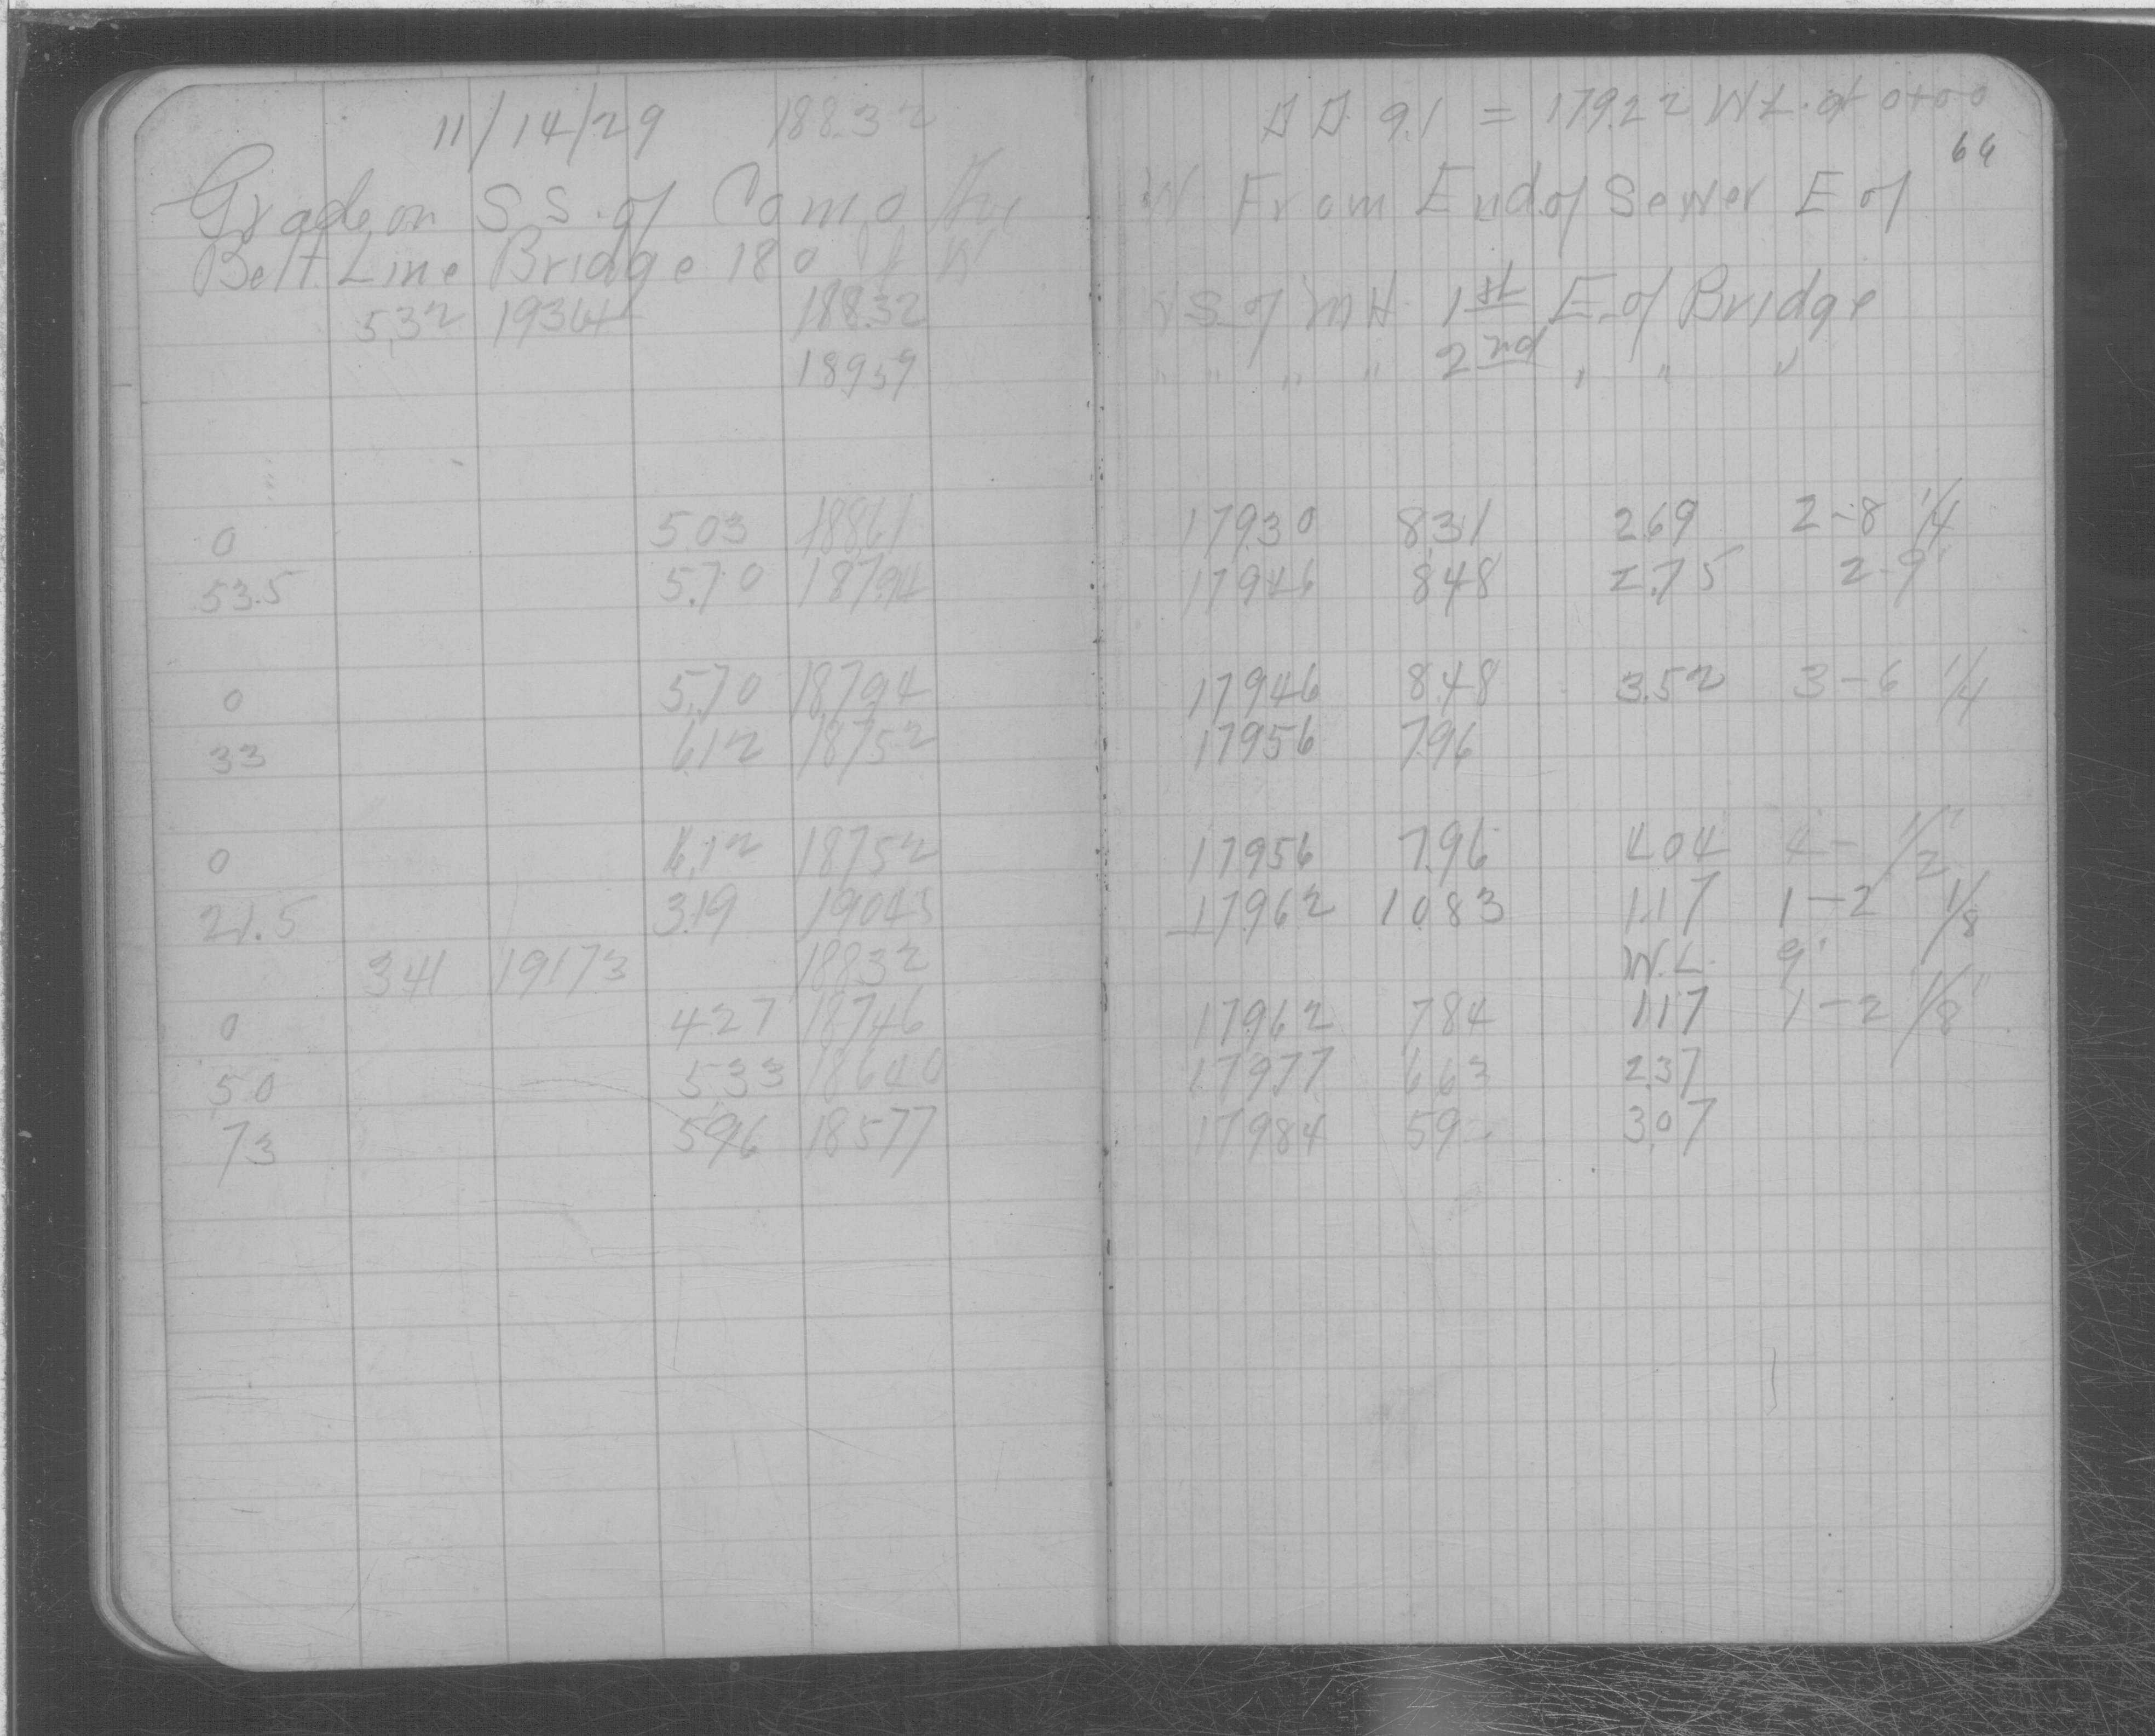 11/14/29 188.32 D.D. 9.1 = 179.22 WL. at 0+00
66
Grade on S.S. of Como Ave W. From End of Sewer E of
Belt Line Bridge 180 ft W
5.32 193.64 188.32 S. of MH 1st E. of Bridge
189.59 " " " " 2nd " " "
0 5.03 188.61 179.30 8.31 2.69 2-8 1/4
53.5 5.70 187.94 179.46 8.48 2.75 2-9"
0 5.70 187.94 179.46 8.48 3.52 3-6 1/4
33 6.12 187.52 179.56 7.96
0 6.12 187.52 179.56 7.96 4.04 4- 1/2"
21.5 3.19 190.45 179.62 10.83 1.17 1-2 1/8
3.41 191.73 188.32 W.L. 9'
0 4.27 187.46 179.62 7.84 1.17 1-2 1/8"
50 5.33 186.40 179.77 6.63 2.37
73 5.96 185.77 179.84 5.9 3.07